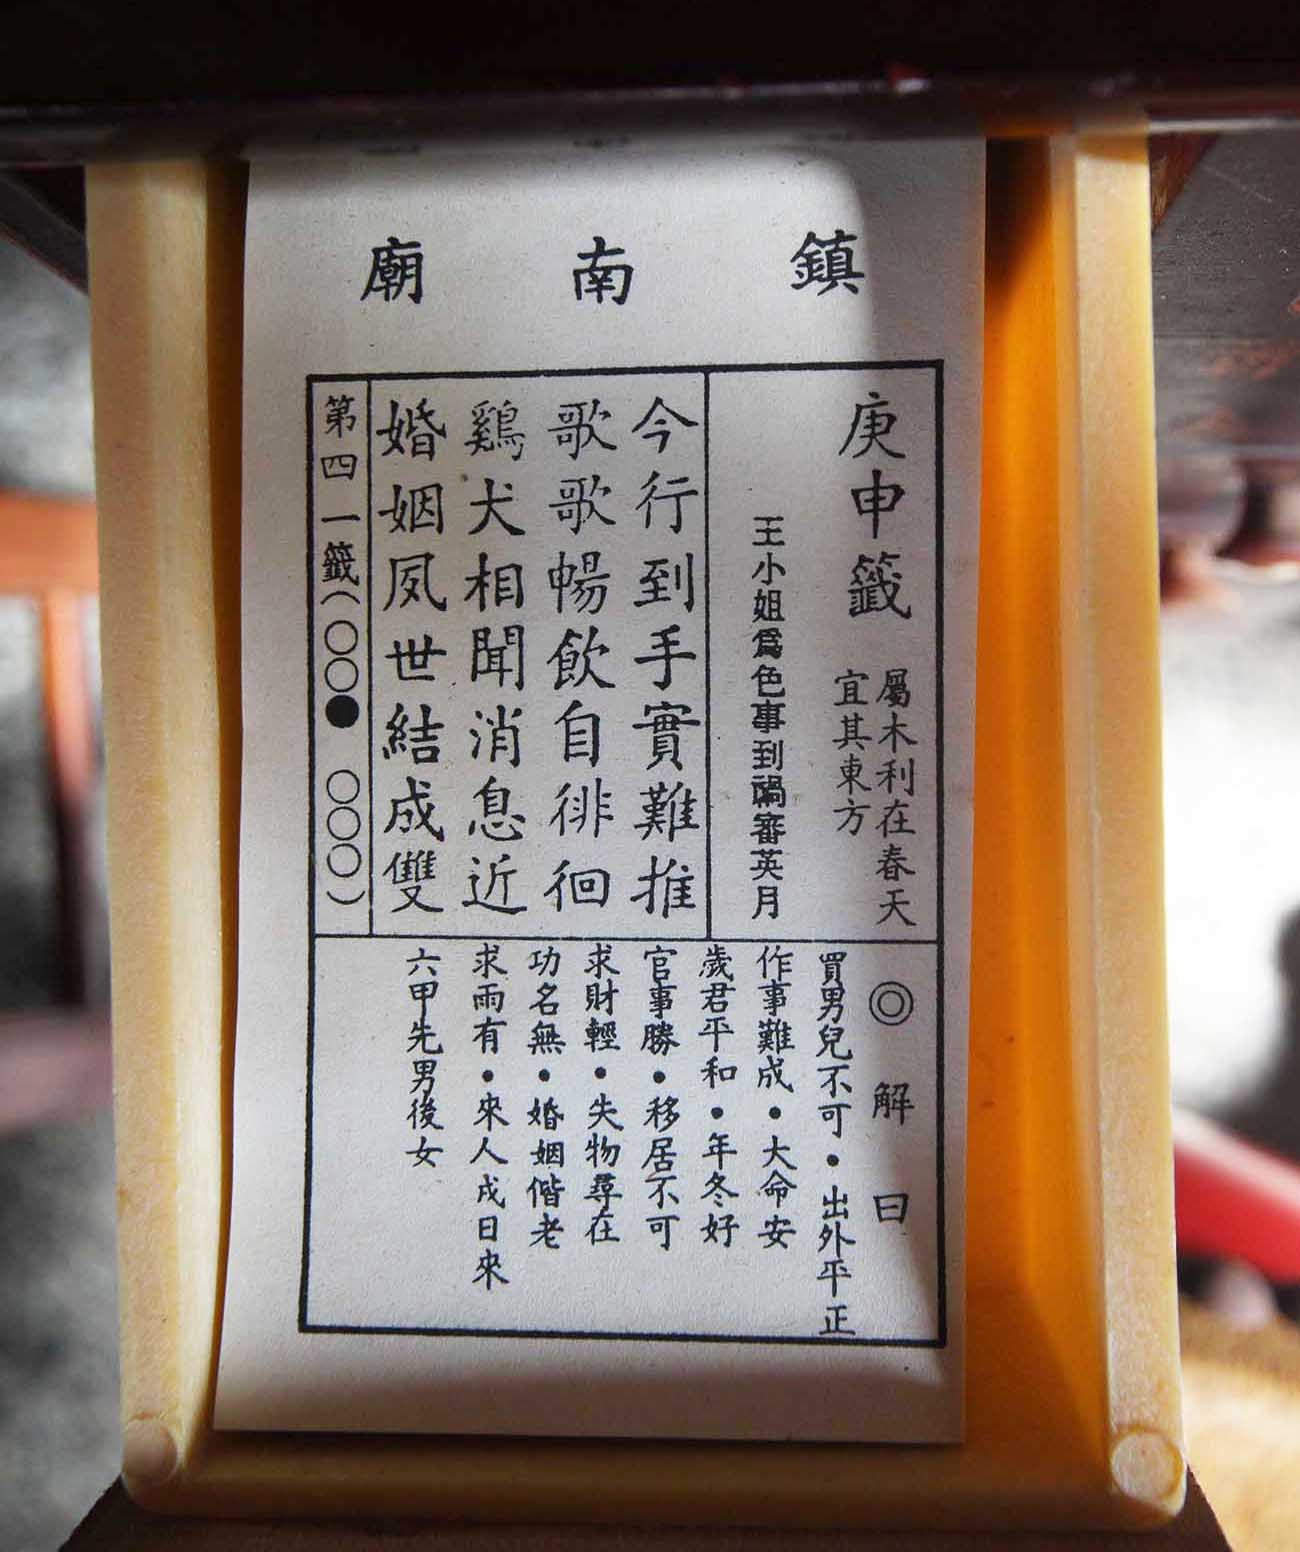 鎮南廟
庚申籤
屬木利在春天
宜其東方
王小姐為色事到禍審英月
今行到手實難推
歌歌暢飲自徘徊
鷄犬相聞消息近
婚姻夙世結成雙
第四一籤(○○● ○○○)
◎解曰
買男兒不可•出外平正
作事難成•大命安
歲君平和•年冬好
官事勝•移居不可
求財輕•失物尋在
功名無•婚姻偕老
求雨有•來人戌日來
六甲先男後女